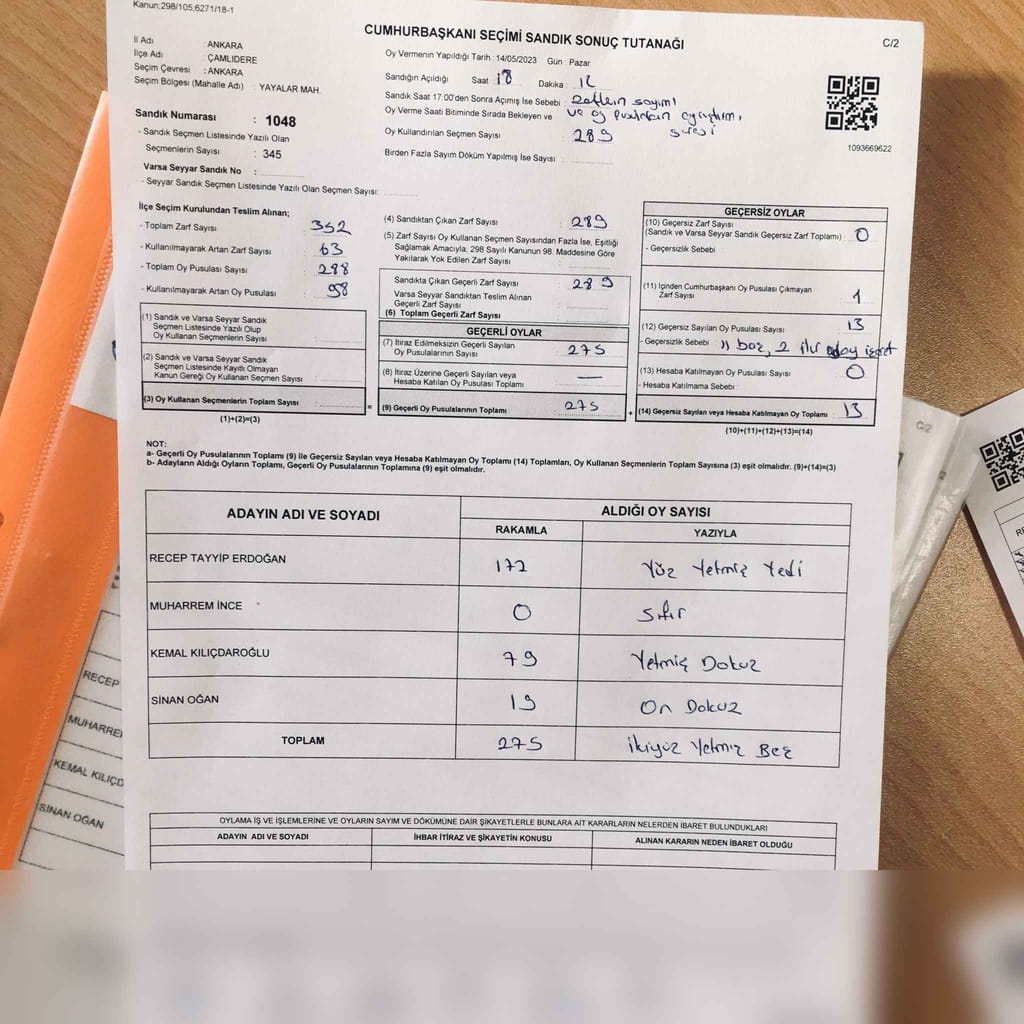 Kanun;298/105;6271/18-1
CUMHURBAŞKANI SEÇİMİ SANDIK SONUÇ TUTANAĞI
C/2
İl Adı : ANKARA
İlçe Adı : ÇAMLIDERE
Seçim Çevresi : ANKARA
Seçim Bölgesi (Mahalle Adı) : YAYALAR MAH.
Sandık Numarası : 1048
- Sandık Seçmen Listesinde Yazılı Olan
Seçmenlerin Sayısı : 345
Varsa Seyyar Sandık No :
- Seyyar Sandık Seçmen Listesinde Yazılı Olan Seçmen Sayısı:
Oy Vermenin Yapıldığı Tarih :14/05/2023 Gün : Pazar
Sandığın Açıldığı Saat : 18 Dakika :
Sandık Saat 17:00'den Sonra Açımış İse Sebebi : Zarfların sayımı
Oy Verme Saati Bitiminde Sırada Bekleyen ve ve oy
Oy Kullandırılan Seçmen Sayısı : 289 süresi
Birden Fazla Sayım Döküm Yapılmış İse Sayısı :
1093669622
İlçe Seçim Kurulundan Teslim Alınan;
- Toplam Zarf Sayısı : 352
- Kullanılmayarak Artan Zarf Sayısı : 63
- Toplam Oy Pusulası Sayısı :
- Kullanılmayarak Artan Oy Pusulası :
(1) Sandık ve Varsa Seyyar Sandık
Seçmen Listesinde Yazılı Olup
Oy Kullanan Seçmenlerin Sayısı :
(2) Sandık ve Varsa Seyyar Sandık
Seçmen Listesinde Kayıtlı Olmayan
Kanun Gereği Oy Kullanan Seçmen Sayısı :
(3) Oy Kullanan Seçmenlerin Toplam Sayısı :
(1)+(2)=(3)
(4) Sandıktan Çıkan Zarf Sayısı : 289
(5) Zarf Sayısı Oy Kullanan Seçmen Sayısından Fazla İse, Eşitliği
Sağlamak Amacıyla, 298 Sayılı Kanunun 98. Maddesine Göre
Yakılarak Yok Edilen Zarf Sayısı :
Sandıkta Çıkan Geçerli Zarf Sayısı : 289
Varsa Seyyar Sandıktan Teslim Alınan
Geçerli Zarf Sayısı :
(6) Toplam Geçerli Zarf Sayısı :
GEÇERLİ OYLAR
(7) İtiraz Edilmeksizin Geçerli Sayılan
Oy Pusulalarının Sayısı : 275
(8) İtiraz Üzerine Geçerli Sayılan veya
Hesaba Katılan Oy Pusulası Toplamı : —
(9) Geçerli Oy Pusulalarının Toplamı : 275
=
+
GEÇERSİZ OYLAR
(10) Geçersiz Zarf Sayısı
(Sandık ve Varsa Seyyar Sandık Geçersiz Zarf Toplamı) : 0
- Geçersizlik Sebebi :
(11) İçinden Cumhurbaşkanı Oy Pusulası Çıkmayan
Zarf Sayısı : 1
(12) Geçersiz Sayılan Oy Pusulası Sayısı : 13
- Geçersizlik Sebebi : 11 boş, 2 aday işaret
(13) Hesaba Katılmayan Oy Pusulası Sayısı : 0
- Hesaba Katılmama Sebebi :
(14) Geçersiz Sayılan veya Hesaba Katılmayan Oy Toplamı : 13
(10)+(11)+(12)+(13)=(14)
NOT:
a- Geçerli Oy Pusulalarının Toplamı (9) ile Geçersiz Sayılan veya Hesaba Katılmayan Oy Toplamı (14) Toplamları, Oy Kullanan Seçmenlerin Toplam Sayısına (3) eşit olmalıdır. (9)+(14)=(3)
b- Adayların Aldığı Oyların Toplamı, Geçerli Oy Pusulalarının Toplamına (9) eşit olmalıdır.
ADAYIN ADI VE SOYADI
ALDIĞI OY SAYISI
RAKAMLA YAZIYLA
RECEP TAYYİP ERDOĞAN 177 Yüz Yetmiş Yedi
MUHARREM İNCE 0 Sıfır
KEMAL KILIÇDAROĞLU 79 Yetmiş Dokuz
SİNAN OĞAN 19 On Dokuz
TOPLAM 275 İkiyüz Yetmiş Beş
OYLAMA İŞ VE İŞLEMLERİNE VE OYLARIN SAYIM VE DÖKÜMÜNE DAİR ŞİKAYETLERLE BUNLARA AİT KARARLARIN NELERDEN İBARET BULUNDUKLARI
ADAYIN ADI VE SOYADI İHBAR İTİRAZ VE ŞİKAYETİN KONUSU ALINAN KARARIN NEDEN İBARET OLDUĞU
RECEP
MUHARREM
KEMAL KILIÇD
SİNAN OĞAN
C/2